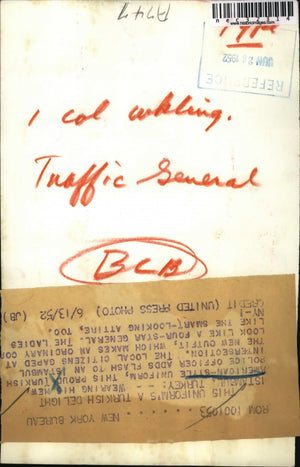 A747
JUN 26 1952
REFERENCE
1 col
Traffic General
BCB
ROM 1001033
NEW YORK BUREAU
THIS UNIFORM'S A TURKISH DELIGHT
ISTANBUL, TURKEY: -- WEARING HIS NEW
AMERICAN-STYLE UNIFORM, THIS PROUD TURKISH
POLICE OFFICER ADDS FLASH TO AN ISTANBUL
INTERSECTION. THE LOCAL CITIZENS GAPED AT
THE NEW OUTFIT, WHICH MAKES AN ORDINARY COP
LOOK LIKE A FOUR-STAR GENERAL. THE LADIES
LIKE THE SMART-LOOKING ATTIRE, TOO.
NY-1
CREDIT (UNITED PRESS PHOTO) 6/13/52 (JB)